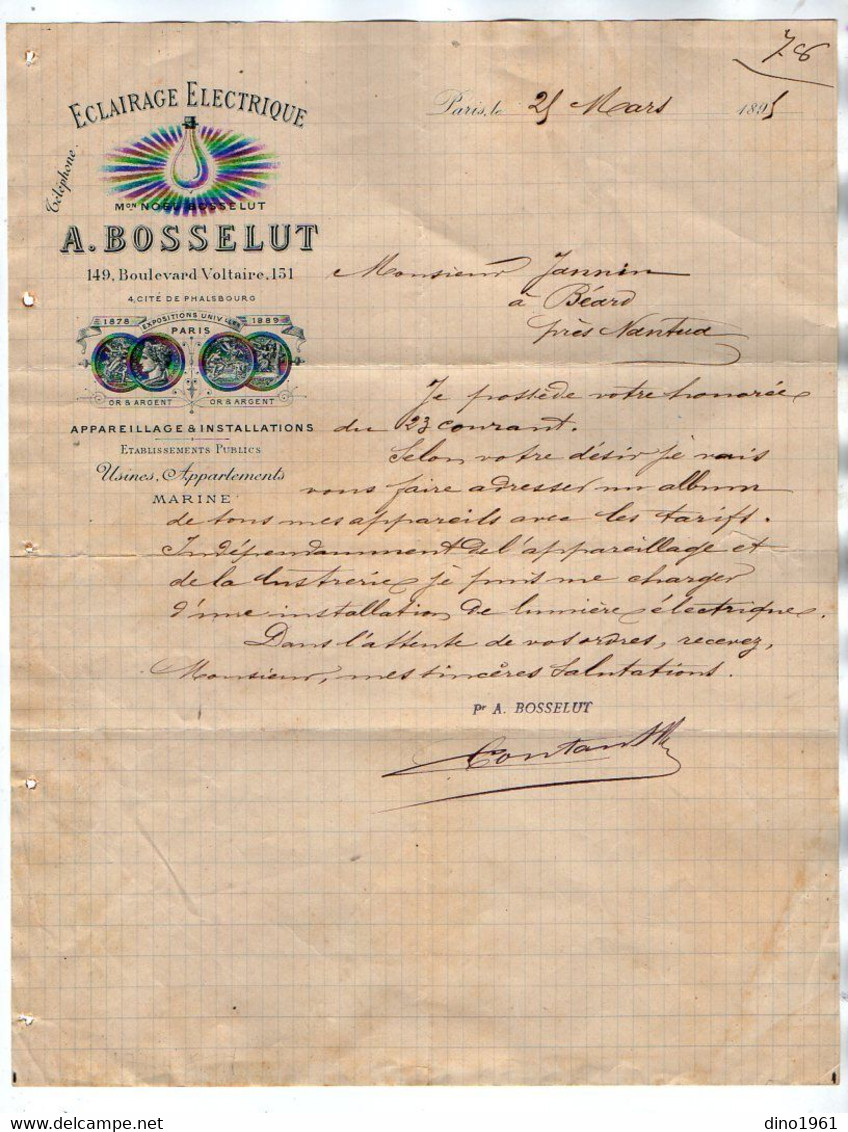 78
ECLAIRAGE ELECTRIQUE
Téléphone.
Mon NOËL BOSSELUT
A. BOSSELUT
149, Boulevard Voltaire, 151
4, CITÉ DE PHALSBOURG
EXPOSITIONS UNIVlles
1878 1889
PARIS
OR & ARGENT OR & ARGENT
APPAREILLAGE & INSTALLATIONS
ETABLISSEMENTS PUBLICS
Usines, Appartements
MARINE
Paris, le 25 Mars 1895
Monsieur Jannin
à Béard
près Nantua
Je possède votre honorée
du 23 courant.
Selon votre désir je vais
vous faire adresser un album
de tous mes appareils avec les tarifs.
Indépendamment de l'appareillage et
de la lustrerie je puis me charger
d'une installation de lumière électrique.
Dans l'attente de vos ordres, recevez,
Monsieur, mes sincères salutations.
Pr A. BOSSELUT
dino1961